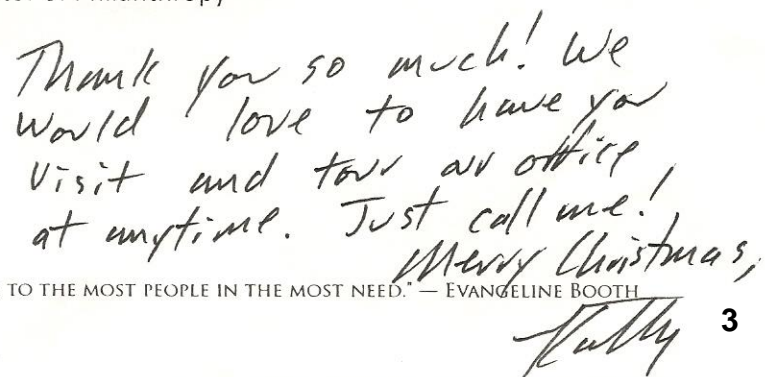 Thank you so much! We
would love to have you
visit and tour our office
at anytime. Just call me!
Merry Christmas,
TO THE MOST PEOPLE IN THE MOST NEED." — EVANGELINE BOOTH
3